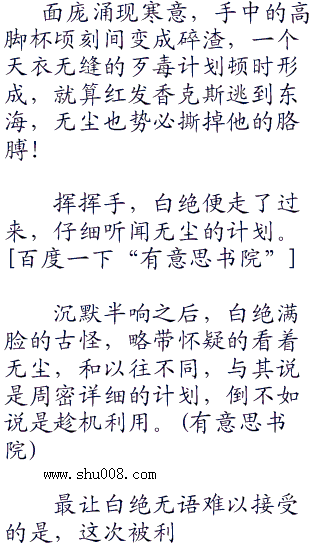 面庞涌现寒意，手中的高
脚杯顷刻间变成碎渣，一个
天衣无缝的歹毒计划顿时形
成，就算红发香克斯逃到东
海，无尘也势必撕掉他的胳
膊！
挥挥手，白绝便走了过
来，仔细听闻无尘的计划。
[百度一下“有意思书院”]
沉默半响之后，白绝满
脸的古怪，略带怀疑的看着
无尘，和以往不同，与其说
是周密详细的计划，倒不如
说是趁机利用。(有意思书
院)
www.shu008.com
最让白绝无语难以接受
的是，这次被利